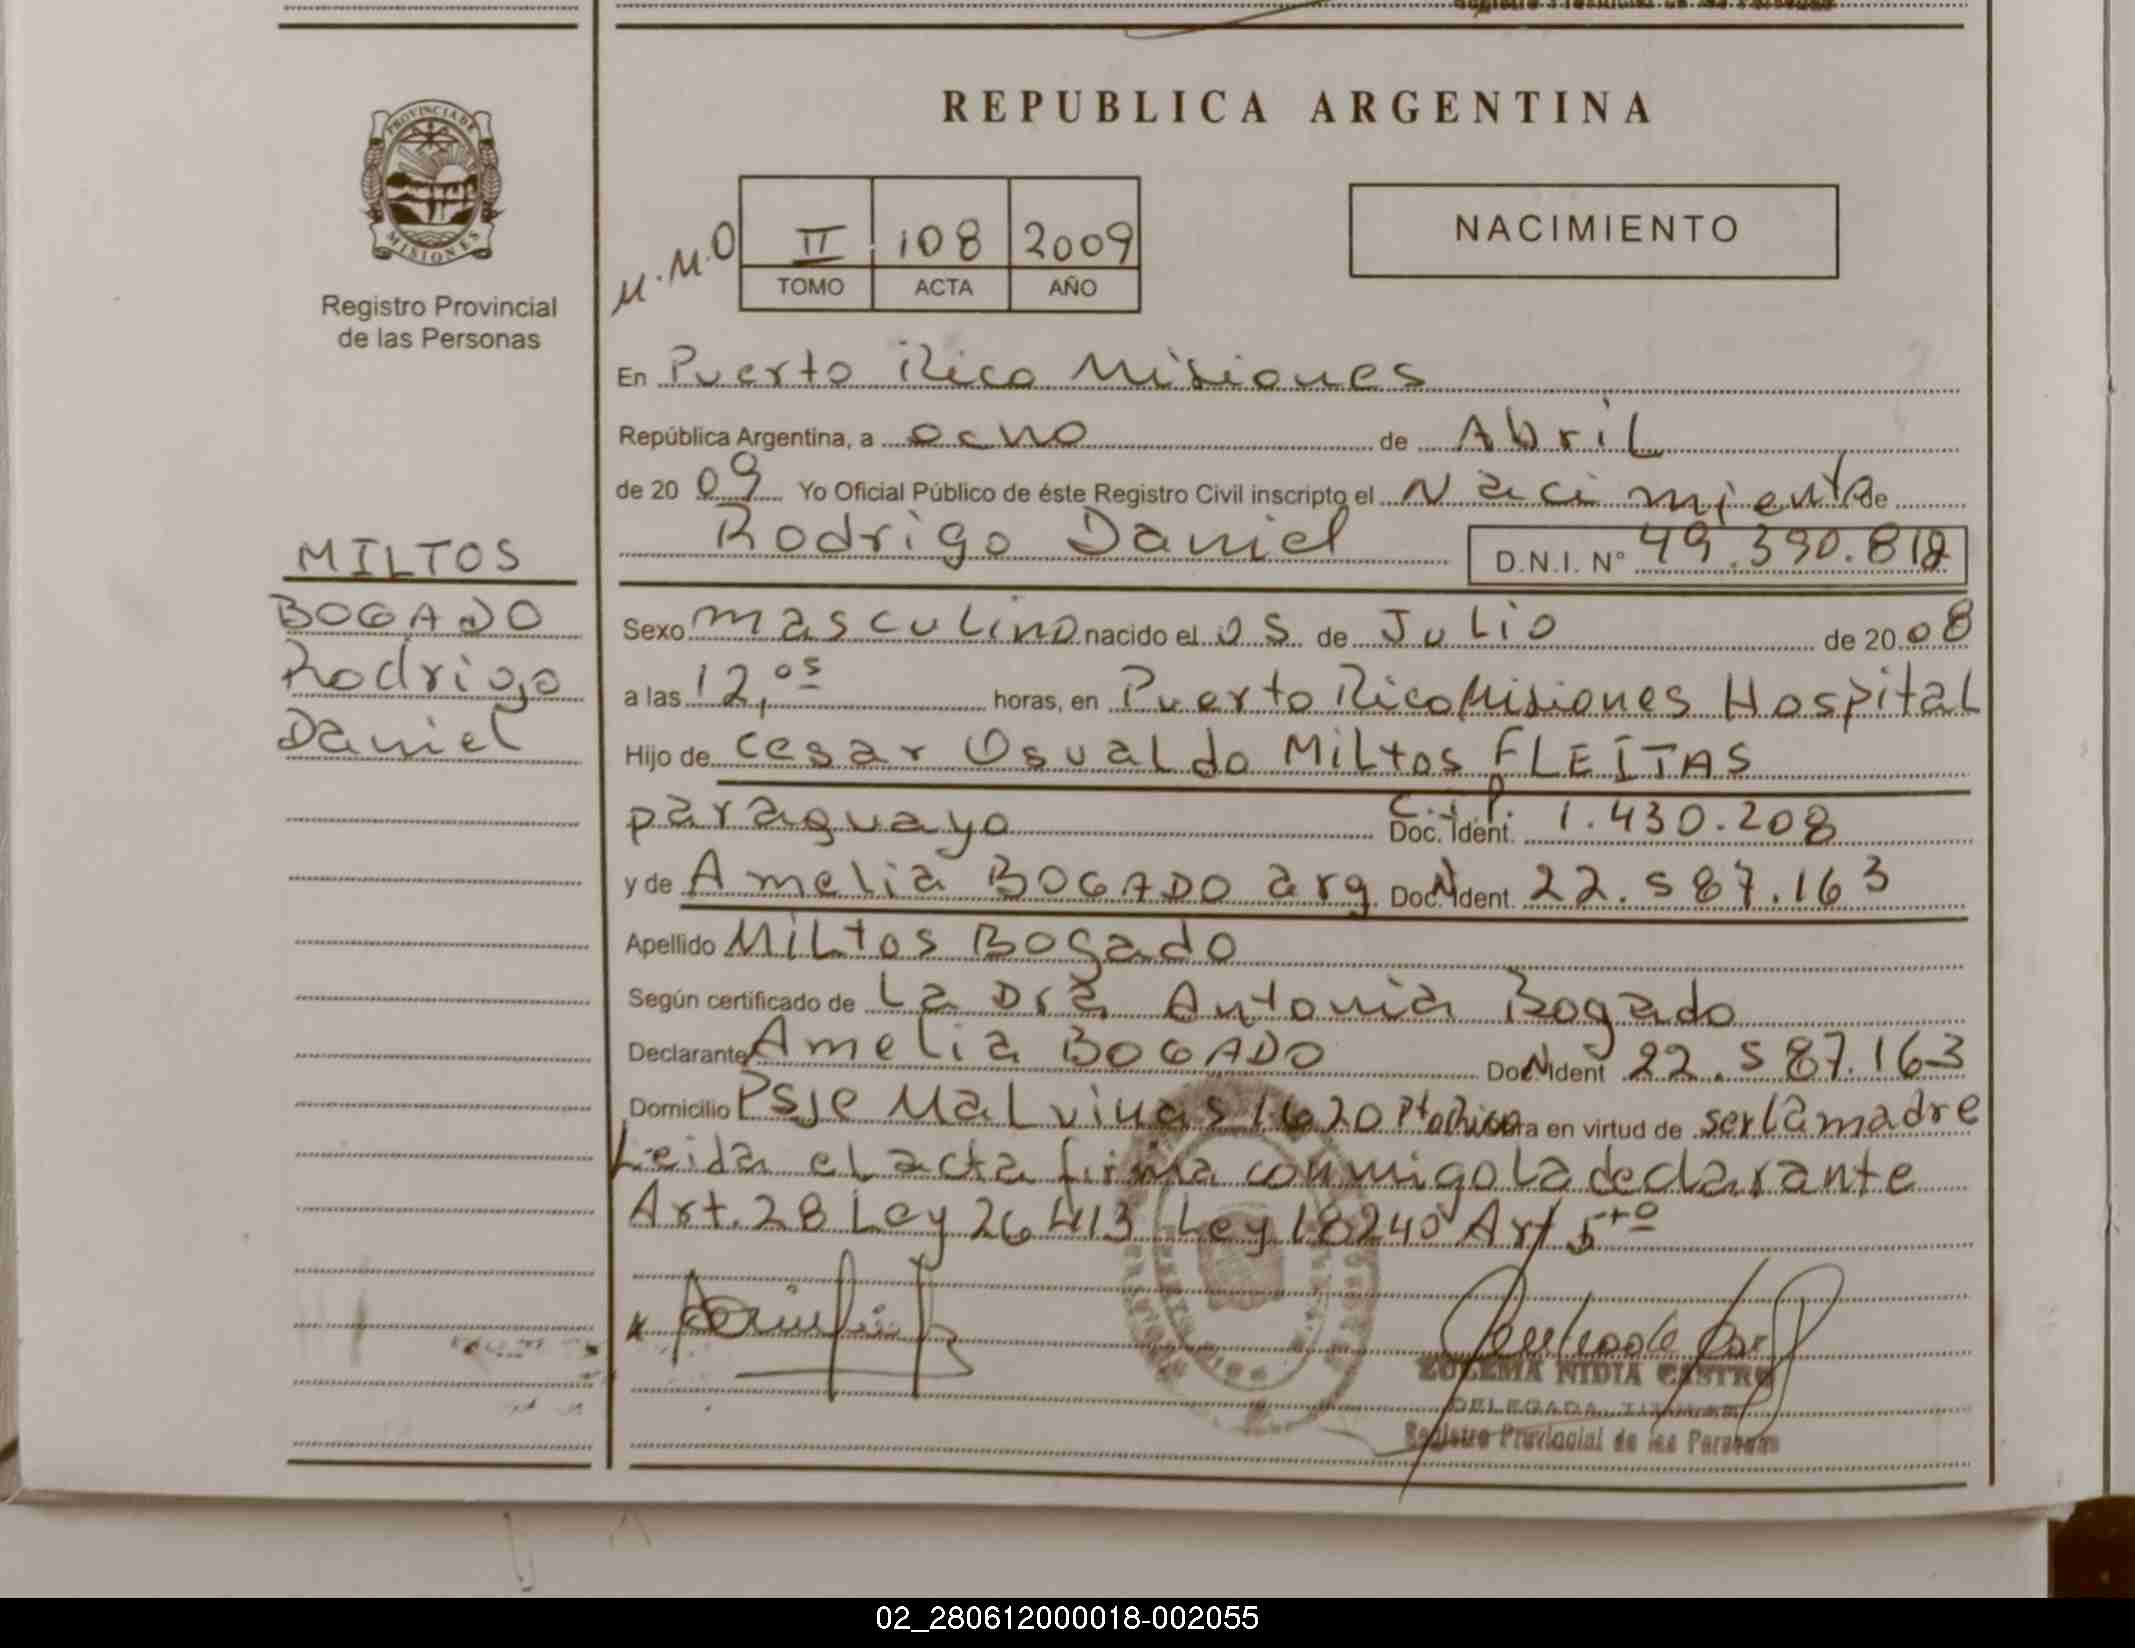 REPUBLICA ARGENTINA
PROVINCIA DE
MISIONES
Registro Provincial
de las Personas
M.M.O
II 108 2009
TOMO ACTA AÑO
NACIMIENTO
En Puerto Rico Misiones
República Argentina, a ocho de Abril
de 20 09 Yo Oficial Público de éste Registro Civil inscripto el Nacimiento de
Rodrigo Daniel D.N.I. Nº 49.390.818
MILTOS
BOGADO
Rodrigo
Daniel
Sexo masculino nacido el 05 de Julio de 20 08
a las 12,05 horas, en Puerto Rico Misiones Hospital
Hijo de Cesar Osvaldo Miltos FLEITAS
paraguayo C.I.P. Doc. Ident. 1.430.208
y de Amelia BOGADO arg. Doc. Ident. 22.587.163
Apellido Miltos Bogado
Según certificado de La Dra Antonia Bogado
Declarante Amelia BOGADO Doc. Ident 22.587.163
Domicilio Psje Malvinas 1620 Pto Rico en virtud de ser la madre
Leida el acta firma conmigo la declarante
Art. 28 Ley 26413 Ley 18240 Art 5to
NIDIA CASTRO
DELEGADA TITULAR
Registro Provincial de las Personas
02_280612000018-002055